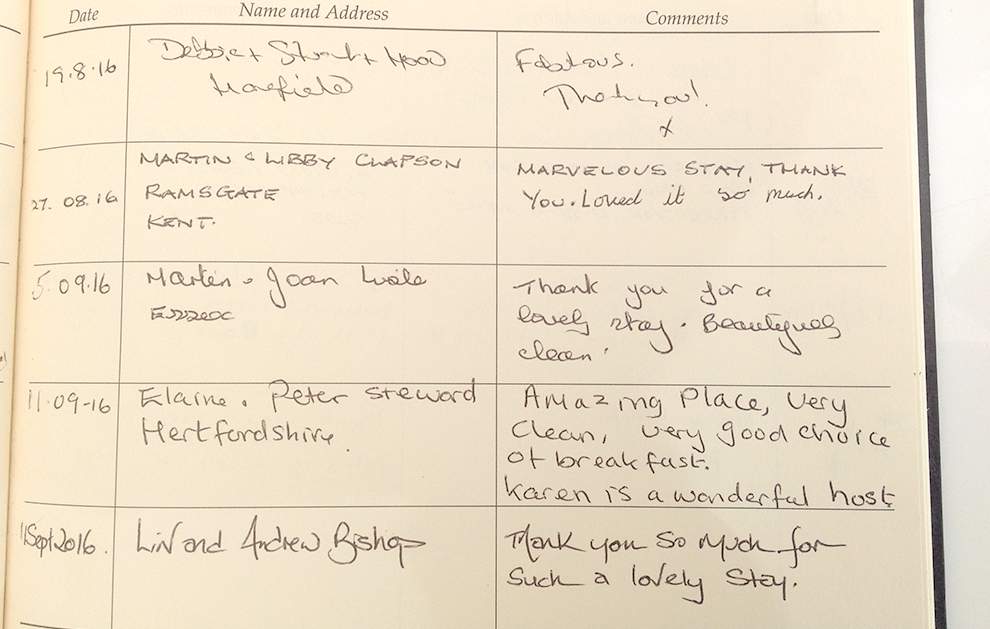 Date Name and Address Comments
19.8.16 Debbie + Stuart Hood Fabulous.
Harefield Thank you!
x
MARTIN & LIBBY CLAPSON MARVELOUS STAY, THANK
27. 08. 16 RAMSGATE You. Loved it so much.
KENT.
5.09.16 Martin & Joan Thank you for a
lovely stay. Beautifully
clean.
11-09-16 Elaine & Peter Steward Amazing Place, Very
Hertfordshire. Clean, very good choice
of breakfast.
Karen is a wonderful host
Sept 2016. Lin and Andrew Bishop Thank you so much for
such a lovely stay.